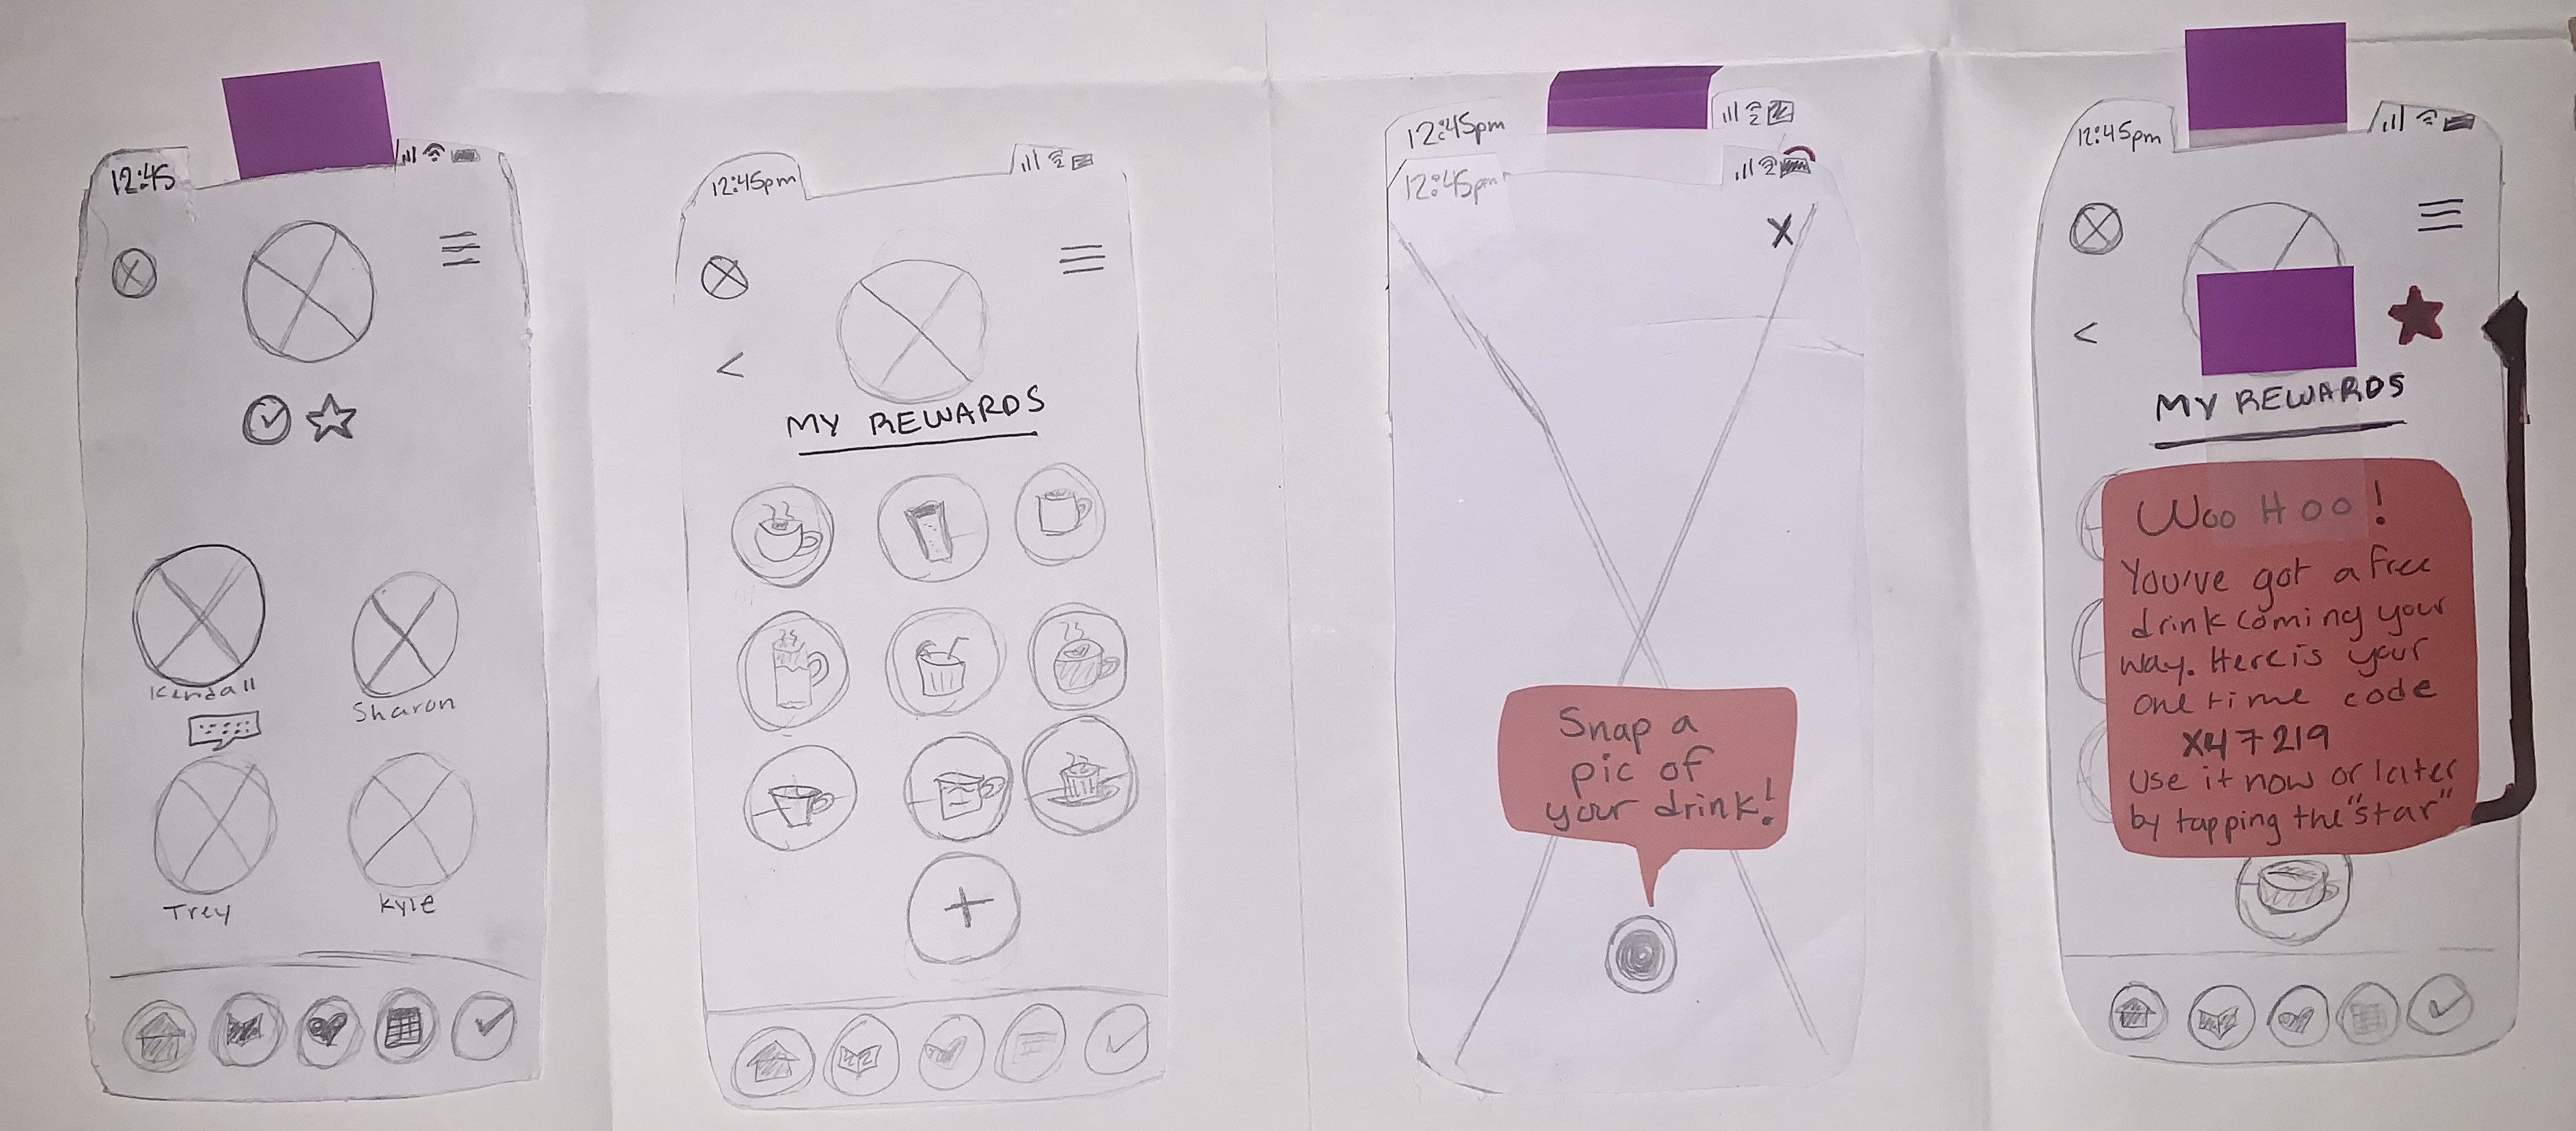 12:45
Kendall
Sharon
Trey
Kyle
12:45pm
MY REWARDS
12:45pm
12:45pm
X
Snap a
pic of
your drink!
12:45pm
<
MY REWARDS
Woo Hoo!
You've got a free
drink coming your
way. Here is your
one time code
X47219
Use it now or later
by tapping the "star"